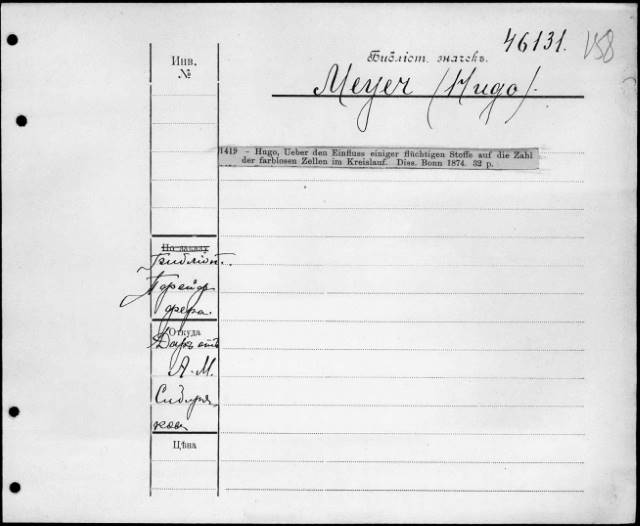 46131. V58
Инв.
№
Библіот. значекъ.
Meyer (Hugo).
1419 - Hugo, Ueber den Einfluss einiger flüchtigen Stoffe auf die Zahl
der farblosen Zellen im Kreislauf. Diss. Bonn 1874. 32 p.
По заказу
Библіот.
Прейер
Откуда
Даръ отъ
А. М.
Сибиря-
кова
Цѣна